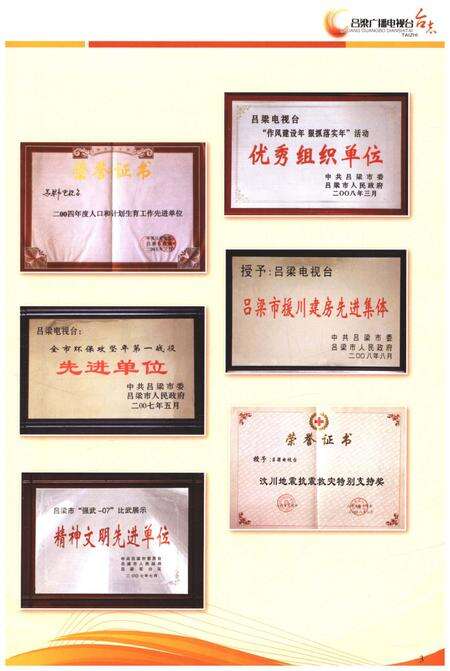 吕梁广播电视台
台志
TAIZHI
荣誉证书
二00四年度人口和计划生育工作先进单位
吕梁电视台
“作风建设年 狠抓落实年”活动
优秀组织单位
中共吕梁市委
吕梁市人民政府
二00八年三月
授予:吕梁电视台
吕梁市援川建房先进集体
中共吕梁市委
吕梁市人民政府
二00八年八月
吕梁电视台:
全市环保攻坚年第一战役
先进单位
中共吕梁市委
吕梁市人民政府
二00七年五月
荣誉证书
授予:吕梁电视台
汶川地震抗震救灾特别支持奖
吕梁市“强武-07”比武展示
精神文明先进单位
吕梁市人民政府
二00七年七月
3